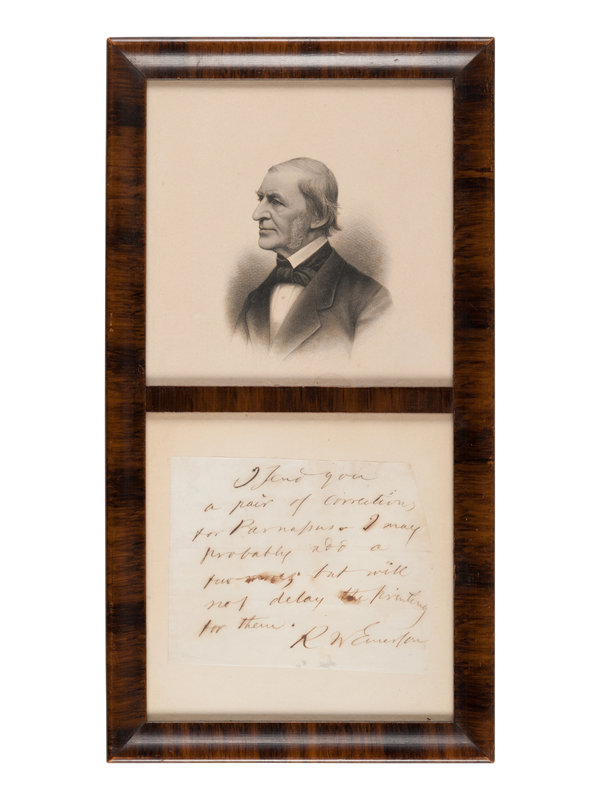 I send you
a pair of corrections
for Parnassus. I may
probably add a
few more; but will
not delay the printing
for them.
R W Emerson